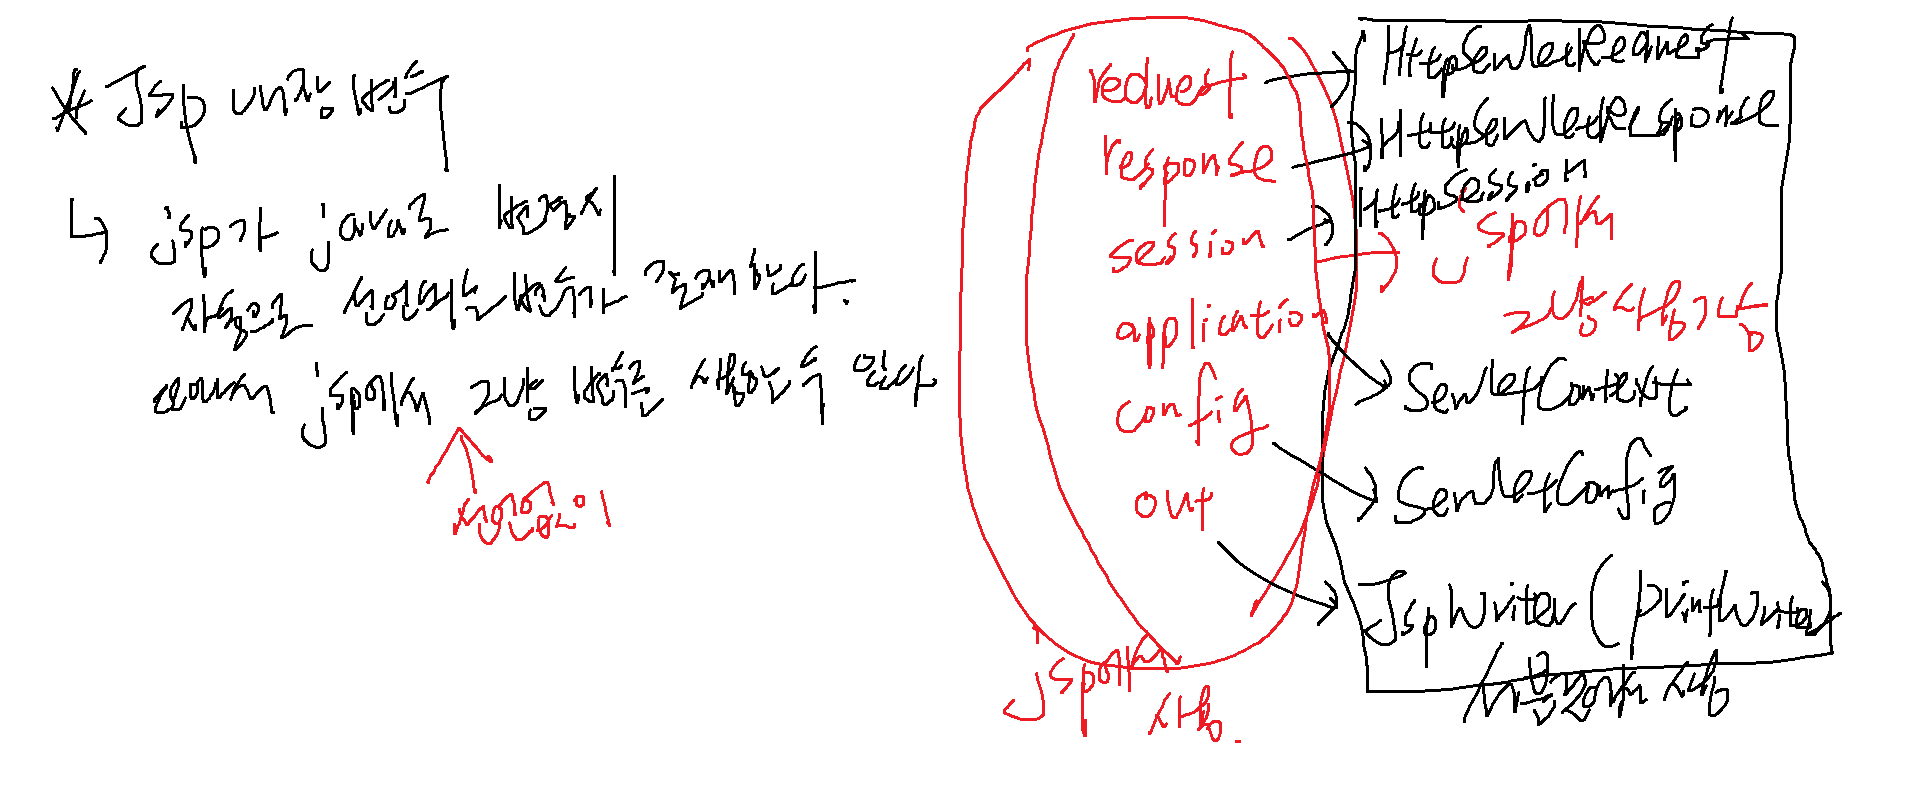 * Jsp 내장 변수
↳ jsp가 java로 변경시
자동으로 선언되는 변수가 존재한다.
따라서 jsp에서 그냥 변수를 사용할 수 있다
선언없이
request → HttpServletRequest
response → HttpServletResponse
session → HttpSession
→ jsp에서
그냥 사용가능
application → ServletContext
config → ServletConfig
out → JspWriter ( printWriter
jsp에서
사용.
서블릿에서 사용